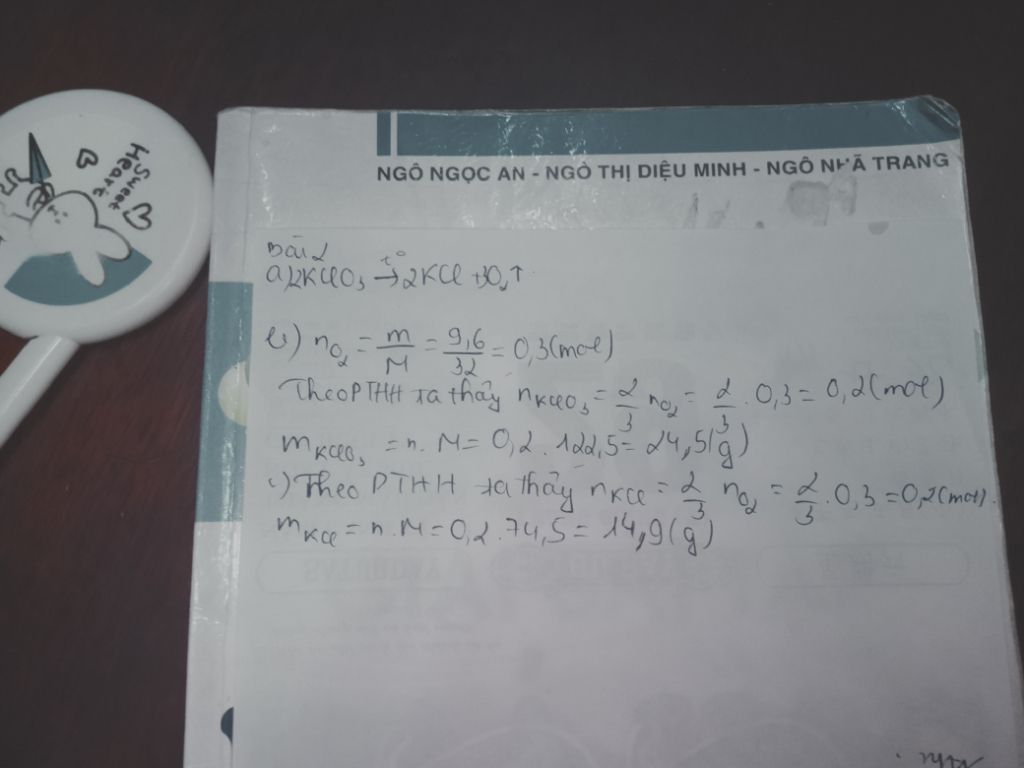 Sweet
Heart
NGÔ NGỌC AN - NGÔ THỊ DIỆU MINH - NGÔ NHÃ TRANG
Bài 2
a) 2KClO₃ →t° 2KCl + 3O₂↑
b) nO₂ = m/M = 9,6/32 = 0,3 (mol)
Theo PTHH ta thấy nKClO₃ = 2/3 nO₂ = 2/3 . 0,3 = 0,2 (mol)
mKClO₃ = n. M = 0,2 . 122,5 = 24,5 (g)
c) Theo PTHH ta thấy nKCl = 2/3 nO₂ = 2/3 . 0,3 = 0,2 (mol).
mKCl = n. M = 0,2 . 74,5 = 14,9 (g)